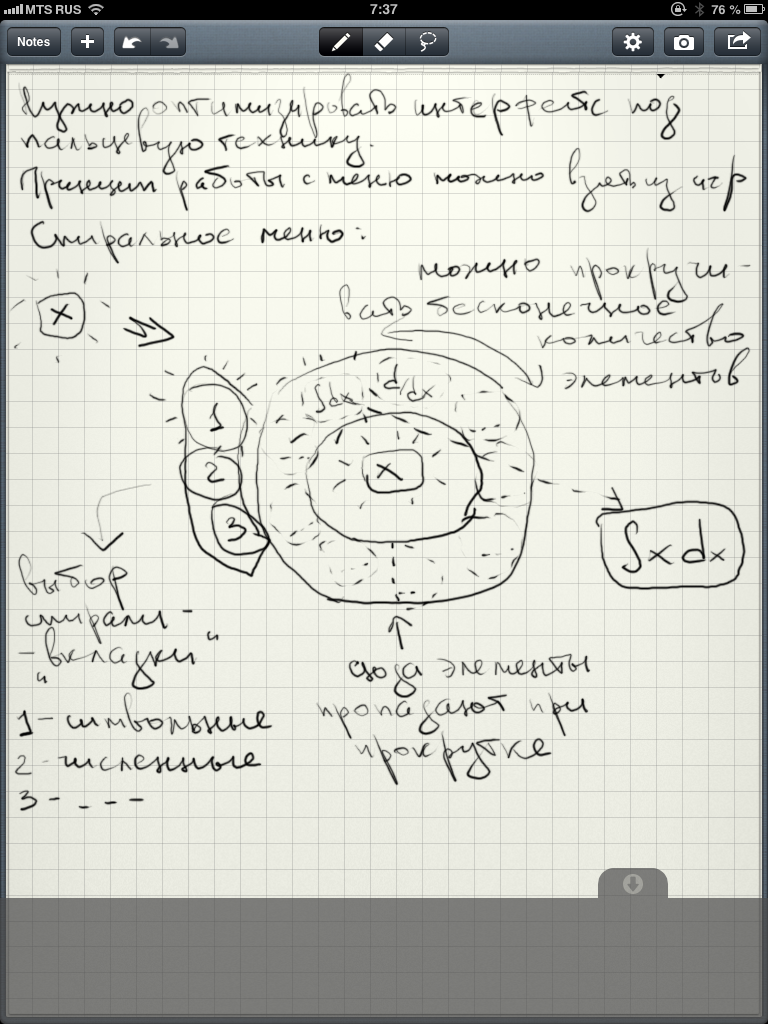 MTS RUS 7:37 76 %
Notes
Нужно оптимизировать интерфейс под
пальцевую технику.
Принцип работы с меню можно взять из игр
Спиральное меню:
можно прокручи-
вать бесконечное
количество
элементов
x
∫dx d/dx
1
2
3
x
∫x dx
выбор
спирали -
- "вкладки"
1 - символьные
2 - численные
3 - - - -
сюда элементы
пропадают при
прокрутке